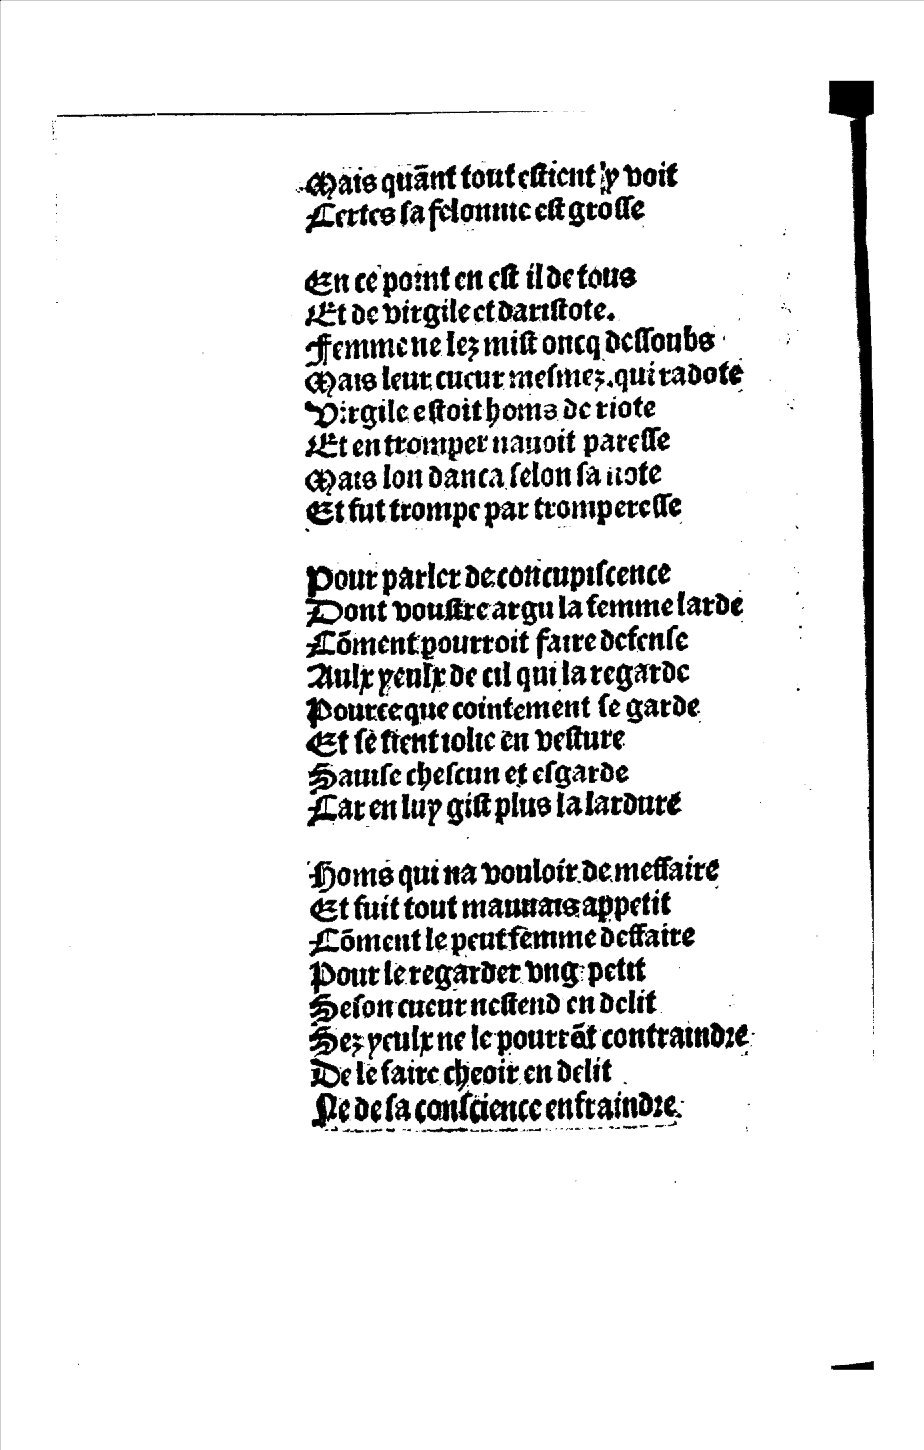 Mais quãnt tout estient y voit
Certes sa felonnie est grosse

En ce point en est il de tous
Et de virgile et daristote.
Femme ne lez mist oncq dessoubs
Mais leur cueur mesmez. qui radote
Virgile estoit homs de riote
Et en tromper nauoit paresse
Mais lon danca selon sa note
Et fut trompe par tromperesse

Pour parler de concupiscence
Dont voustre argu la femme larde
Cõment pourroit faire defense
Aulx yeulx de cil qui la regarde
Pource que cointement se garde
Et se tient iolie en vesture
Sauise chescun et esgarde
Car en luy gist plus la lardure

Homs qui na vouloir de meffaire
Et fuit tout mauuais appetit
Cõment le peut femme deffaire
Pour le regarder vng petit
Se son cueur nestend en delit
Sez yeulx ne le pourrõt contraindre
De le faire cheoir en delit
Ne de sa conscience enfraindre.